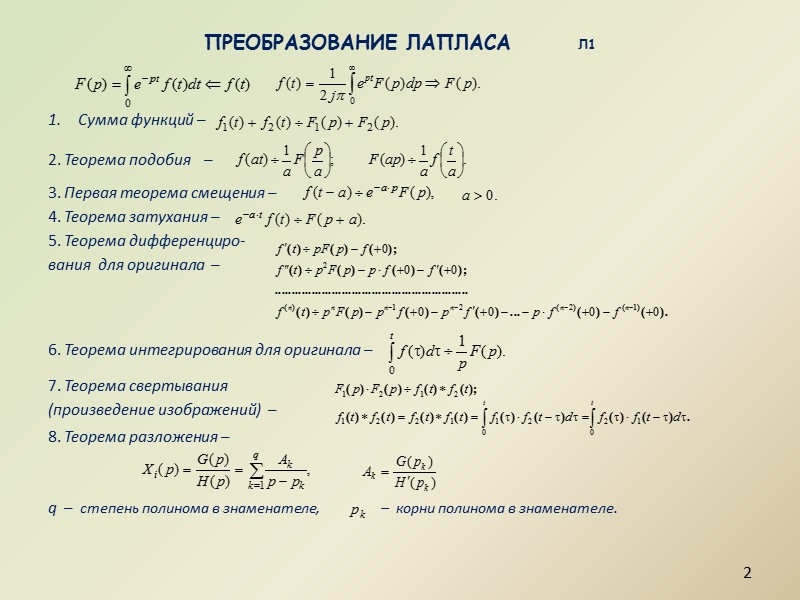 ПРЕОБРАЗОВАНИЕ ЛАПЛАСА Л1
F(p) = ∫₀^∞ e^{−pt} f(t)dt ⇐ f(t) f(t) = 1/(2jπ) ∫₀^∞ e^{pt} F(p)dp ⇒ F(p).
1. Сумма функций – f₁(t) + f₂(t) ÷ F₁(p) + F₂(p).
2. Теорема подобия – f(at) ÷ 1/a F(p/a); F(ap) ÷ 1/a f(t/a).
3. Первая теорема смещения – f(t − a) ÷ e^{−a·p} F(p), a > 0.
4. Теорема затухания – e^{−a·t} f(t) ÷ F(p + a).
5. Теорема дифференциро-
вания для оригинала –
f′(t) ÷ pF(p) − f(+0);
f″(t) ÷ p²F(p) − p · f(+0) − f′(+0);
........................................................
f^{(n)}(t) ÷ pⁿF(p) − p^{n−1} f(+0) − p^{n−2} f′(+0) − ... − p · f^{(n−2)}(+0) − f^{(n−1)}(+0).
6. Теорема интегрирования для оригинала – ∫₀^t f(τ)dτ ÷ 1/p F(p).
7. Теорема свертывания F₁(p) · F₂(p) ÷ f₁(t) ∗ f₂(t);
(произведение изображений) – f₁(t) ∗ f₂(t) = f₂(t) ∗ f₁(t) = ∫₀^t f₁(τ) · f₂(t − τ)dτ = ∫₀^t f₂(τ) · f₁(t − τ)dτ.
8. Теорема разложения –
X_i(p) = G(p)/H(p) = ∑_{k=1}^q A_k/(p − p_k), A_k = G(p_k)/H′(p_k)
q – степень полинома в знаменателе, p_k – корни полинома в знаменателе.
2